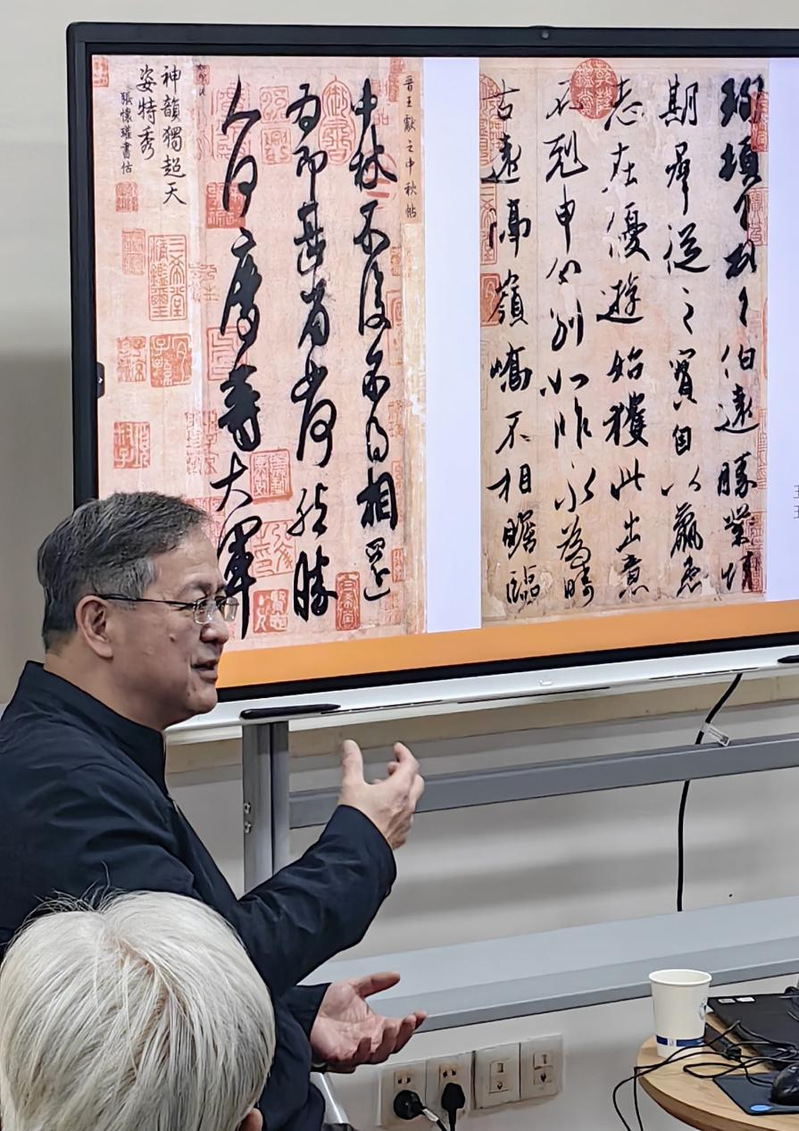 珣頓首頓首伯遠勝業情
期羣從之寶自以羸患
志在優遊始獲此出意
不剋申分別如昨永為疇
古遠隔嶺嶠不相瞻臨
晉王獻之中秋帖
中秋不復不得相還
為即甚省如何然勝
人何慶等大軍
神韻獨超天
姿特秀
張懷瓘書估
三希堂精鑑璽
宜子孫